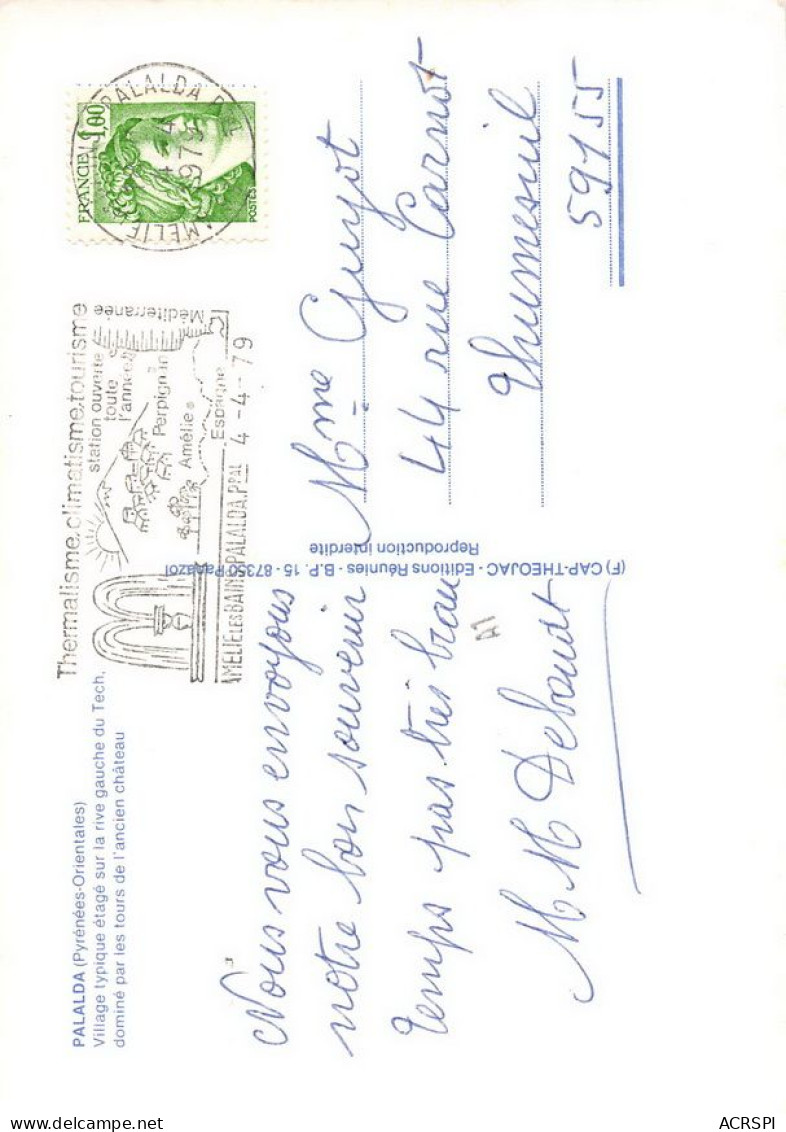 PALALDA (Pyrénées-Orientales)
Village typique étagé sur la rive gauche du Tech,
dominé par les tours de l'ancien château
Thermalisme.climatisme.tourisme
station ouverte
toute
l'année
Méditerranée
Perpignan
Amélie
Espagne
AMELIE LES BAINS PALALDA.Ppal 4-4-79
PALALDA
4-4
1979
AMELIE
FRANCE 1,00
POSTES
Nous vous envoyons
notre bon souvenir
temps pas très beau
M M Debaudt
(F) CAP-THEOJAC - Editions Réunies - B.P. 15 - 87350 Panazol
Reproduction interdite
A1
Mme Guyot
44 rue Carnot
Thumesnil
59155
ACRSPI